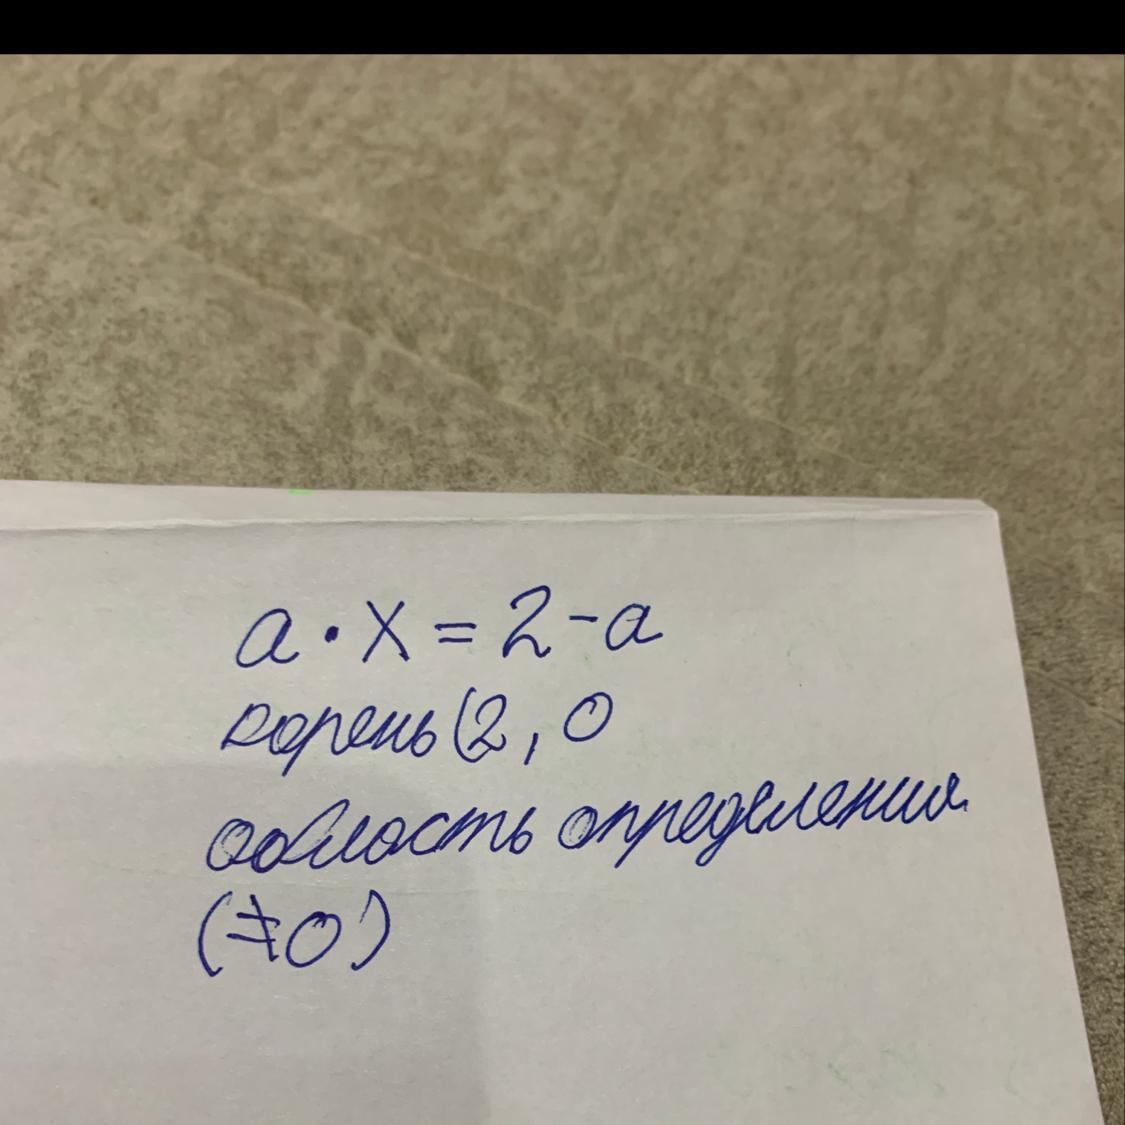 a · x = 2 - a
корень (2, 0
область определения
(≠0)